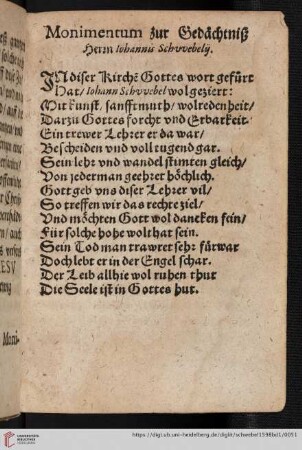 Monimentum zur Gedächtniß
Herrn Iohannis Schvvebelij.
IN diser Kirchẽ Gottes wort gefürt
Hat/ Iohann Schvvebel wol geziert:
Mit kunst/ sanfftmuth/ wolredenheit/
Darzu Gottes forcht vnd Erbarkeit.
Ein trewer Lehrer er da war/
Bescheiden vnd voll tugend gar.
Sein lehr vnd wandel stimten gleich/
Von jederman geehret höchlich.
Gott geb vns diser Lehrer vil/
So treffen wir das rechte ziel/
Vnd möchten Gott wol dancken fein/
Für solche hohe wolthat sein.
Sein Tod man trawret sehr fürwar
Doch lebt er in der Engel schar.
Der Leib allhie wol ruhen thut
Die Seele ist in Gottes hut.
JESV
Moni-
https://digi.ub.uni-heidelberg.de/diglit/schwebel1598bd1/0051